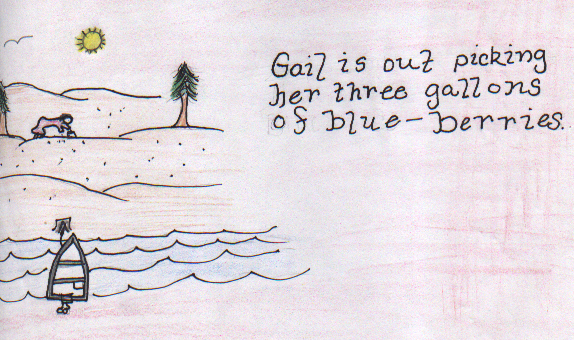 Gail is out picking
her three gallons
of blue-berries.